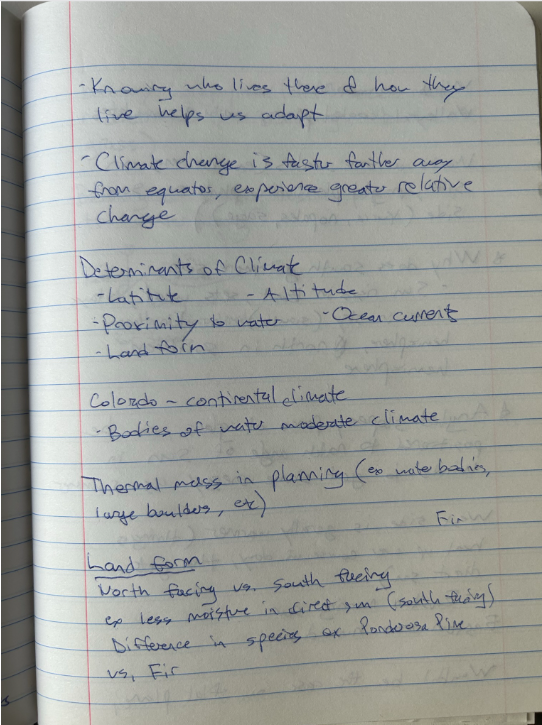 - Knowing who lives there & how they
live helps us adapt
- Climate change is faster farther away
from equator, experience greater relative
change
Determinants of Climate
- Latitute - Altitude
- Proximity to water - Ocean currents
- Land form
Colorado - continental climate
- Bodies of water moderate climate
Thermal mass in planning (ex water bodies,
large boulders, etc)
Fir
Land form
North facing vs. south facing
ex less moisture in direct sun (south facing)
Difference in species ex Ponderosa Pine
vs. Fir